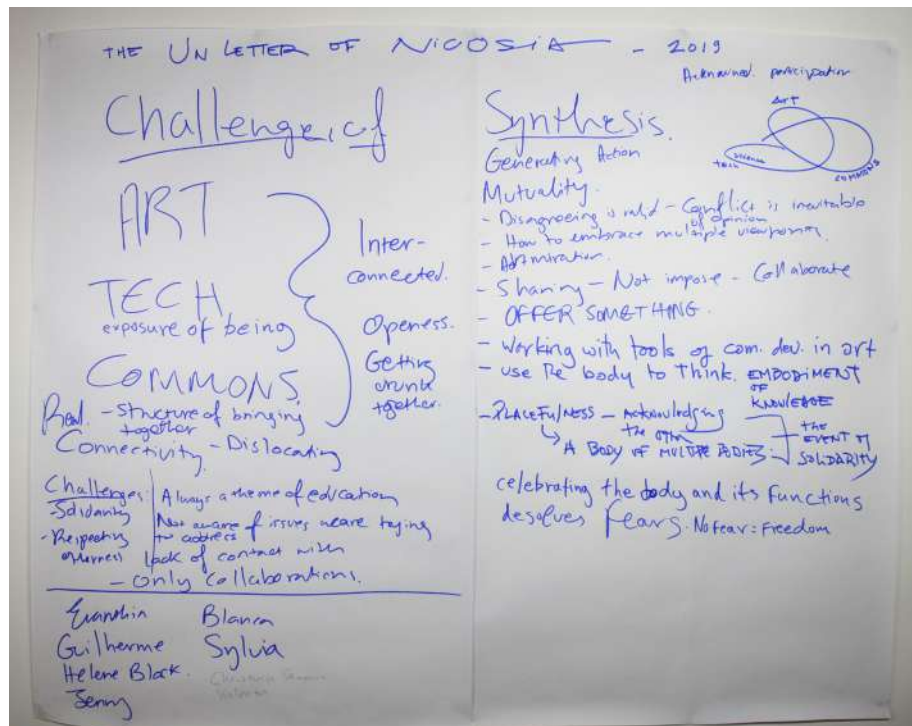 THE UN LETTER OF NICOSIA - 2019
Challenge, of
ART
TECH
exposure of being
COMMONS.
Inter-
connected.
Openess.
Getting
drunk
together.
Real. - Structure of bringing
together
Connectivity - Dislocating
Challenges:
Solidarity
- Respecting
otherness
Always a theme of education
Not aware of issues we are trying
to address
lack of contact with
- Only Collaborations.
Evanthia
Blanca
Guilherme
Sylvia
Helene Black.
Jenny
participation
Synthesis.
ART
science
tech
COMMONS
Generating Action
Mutuality.
- Disagreeing is valid - Conflict is inevitable
of opinion
- How to embrace multiple viewpoints.
- Admiration.
- Sharing - Not impose - Collaborate
- OFFER SOMETHING.
- Working with tools of com. dev. in art
- use the body to Think. EMBODIMENT
OF
KNOWLEDGE
- PLACEFULNESS - ACKNOWLEDGING
THE OTHER
A BODY OF MULTIPLE BODIES
THE
EVENT OF
SOLIDARITY
celebrating the body and its functions
desolves fears. No fear = Freedom